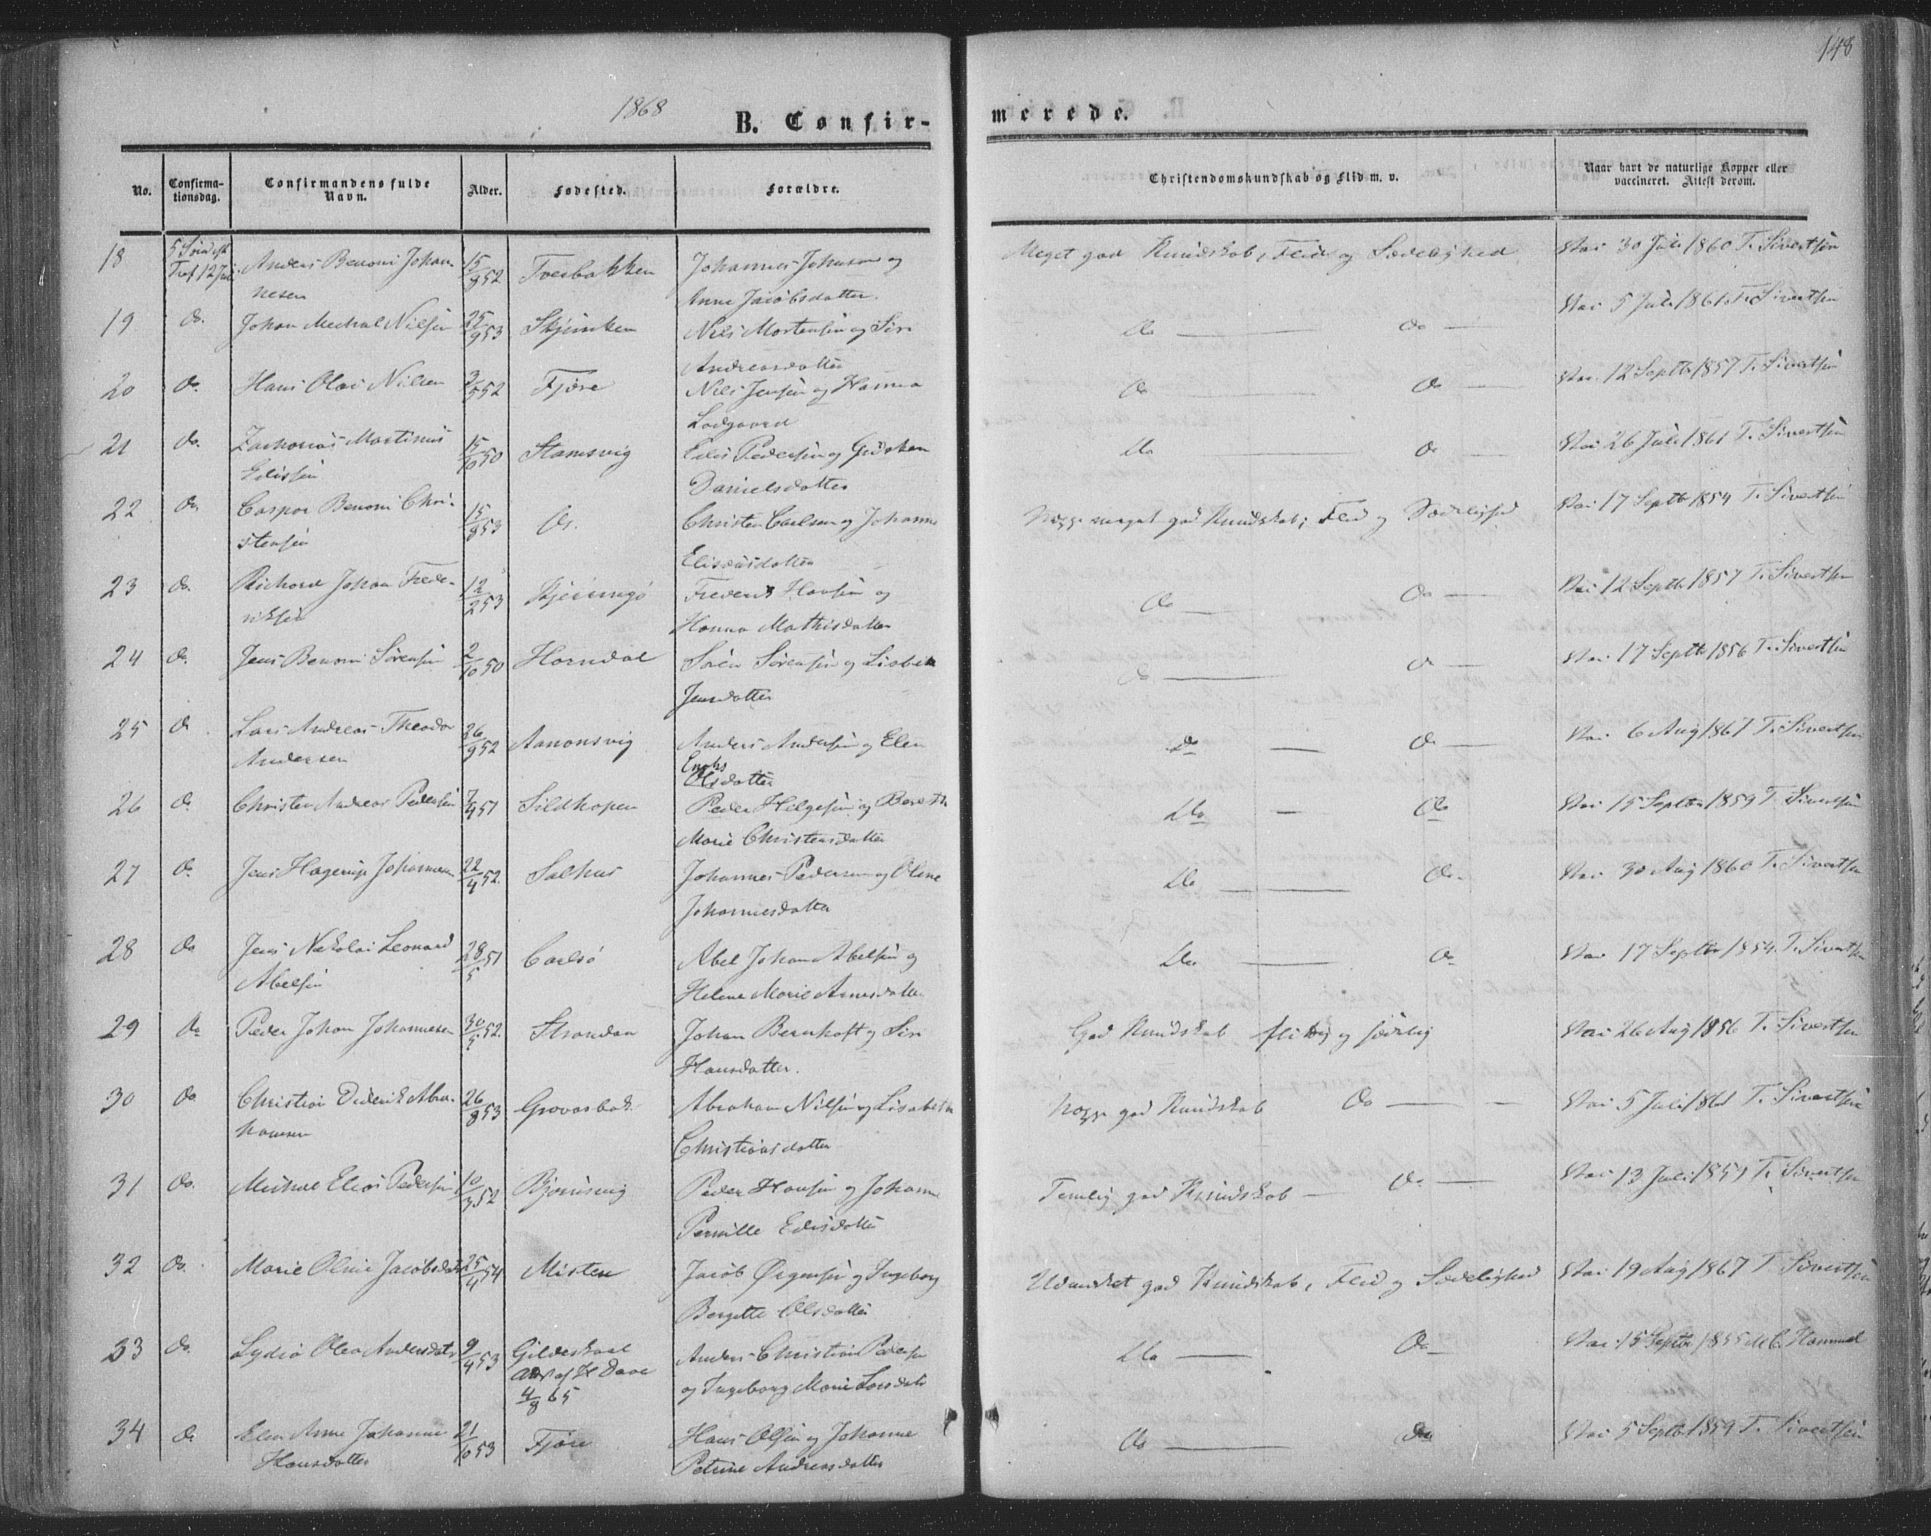 148
1868
B. Confir-
merede.
No.
Confirma-
tionsdag.
Confirmandens fulde
Navn.
Alder.
Fødested.
Forældre.
Christendomskundskab og Flid m. v.
Naar havt de naturlige Kopper eller
vaccineret. Attest derom.
18 5 Sönd. e.
Tref 12 Juli Anders Benoni Johan 15/9 52 Tverbakken Johannes Johnsen og Meget god Kundskab, Flid og Sædelighed Vac 30 Juli 1860 T. Sivertsen
nesen Anne Jacobsdatter.
19 do. Johan Michal Nilsen 25/9 53 Skjeviken Nils Mortensen og Siri Do — Do — Vac 5 Juli 1861 T. Sivertsen
Andreasdatter
20 do. Hans Olai Nilsen 3/5 52 Fjøre Nils Jensen og Hanna Do — Do — Vac. 12 Septbr 1857 T. Sivertsen
Lodgaard
21 do. Zacharias Martinus 15/10 50 Stamsvig Edis Pedersen og Gusken Do — Do — Vac 26 Juli 1861 T. Sivertsen
Edissen Danielsdatter
22 do. Caspar Benoni Chri- 15/8 53 Do. Christen Carlsen og Johanne Noget meget god Kundskab, Flid og Sædelighed Vac 17 Septbr 1854 T. Sivertsen
stensen Elisæusdatter
23 do. Richard Johan Frede- 12/2 53 Skjerringö Frederik Hansen og Do — Do — Vac 12 Septbr 1857 T. Sivertsen
riksen Hanna Mathisdatter
24 do. Jens Benoni Sörensen 2/10 50 Horndal Sören Sörensen og Lisbeth Do — Do — Vac 17 Septbr 1856 T. Sivertsen
Jensdatter
25 do. Lars Andreas Theodor 26/9 52 Aanonsvig Anders Andersen og Elen Do — Do — Vac 6 Aug 1867 T. Sivertsen
Andersen Enoks
Olsdatter
26 do. Christen Andreas Pedersen 7/9 51 Sildhopen Peder Helgesen og Bereth Do — Do Vac 15 Septbr 1859 T. Sivertsen
Marie Christensdatter
27 do. Jens Hagerup Johannesen 22/4 52. Salhus Johannes Pedersen og Oline Do — Do. Vac 30 Aug 1860 T. Sivertsen
Johannesdatter
28 do Jens Nikolai Leonard 28/5 51 Carlsö Abel Johan Abelsen og Do — Do Vac 17 Septbr 1854. T. Sivertsen
Abelsen Helene Marie Arnesdatter
29 do Peder Johan Johannesen 30/5 52. Strandaa Johan Bernhoft og Siri God Kundskab flittig og sædelig Vac 26 Aug 1856 T. Sivertsen
Hansdatter.
30 do Christian Diderik Abra- 26/8 53 Grovasbak Abraham Nilsen og Lisabeth Noget god Kundskab Do — Vac 5 Juli 1861 T. Sivertsen
hamsen Christiansdatter
31 do. Michael Elias Pedersen 10/3 52 Bjørnsvig Peder Hansen og Johanne Temlig god Kundskab — Do. — Vac 13 Juli 1857 T. Sivertsen
Pernille Edisdatter
32 do. Marie Oline Jacobsdatter 25/4 54 Misten Jacob Ørgensen og Ingeborg Udmærket god Kundskab, Flid og Sædelighed Vac 19 Aug 1867 T. Sivertsen
Bergitte Olsdatter
33 do. Lydia Olea Andersdatter 9/4 53 Gildeskaal Anders Christian Pedersen Do — Do Vac 15 Septbr 1855 M. C. Hammel
4/8 65 og Ingeborg Marie Larsdatter
34 do Elen Anne Johanne 21/10 53 Fjøre Hans Olsen og Johanne Do — Do Vac 5 Septbr 1859 T. Sivertsen
Hansdatter Petrine Andreasdatter